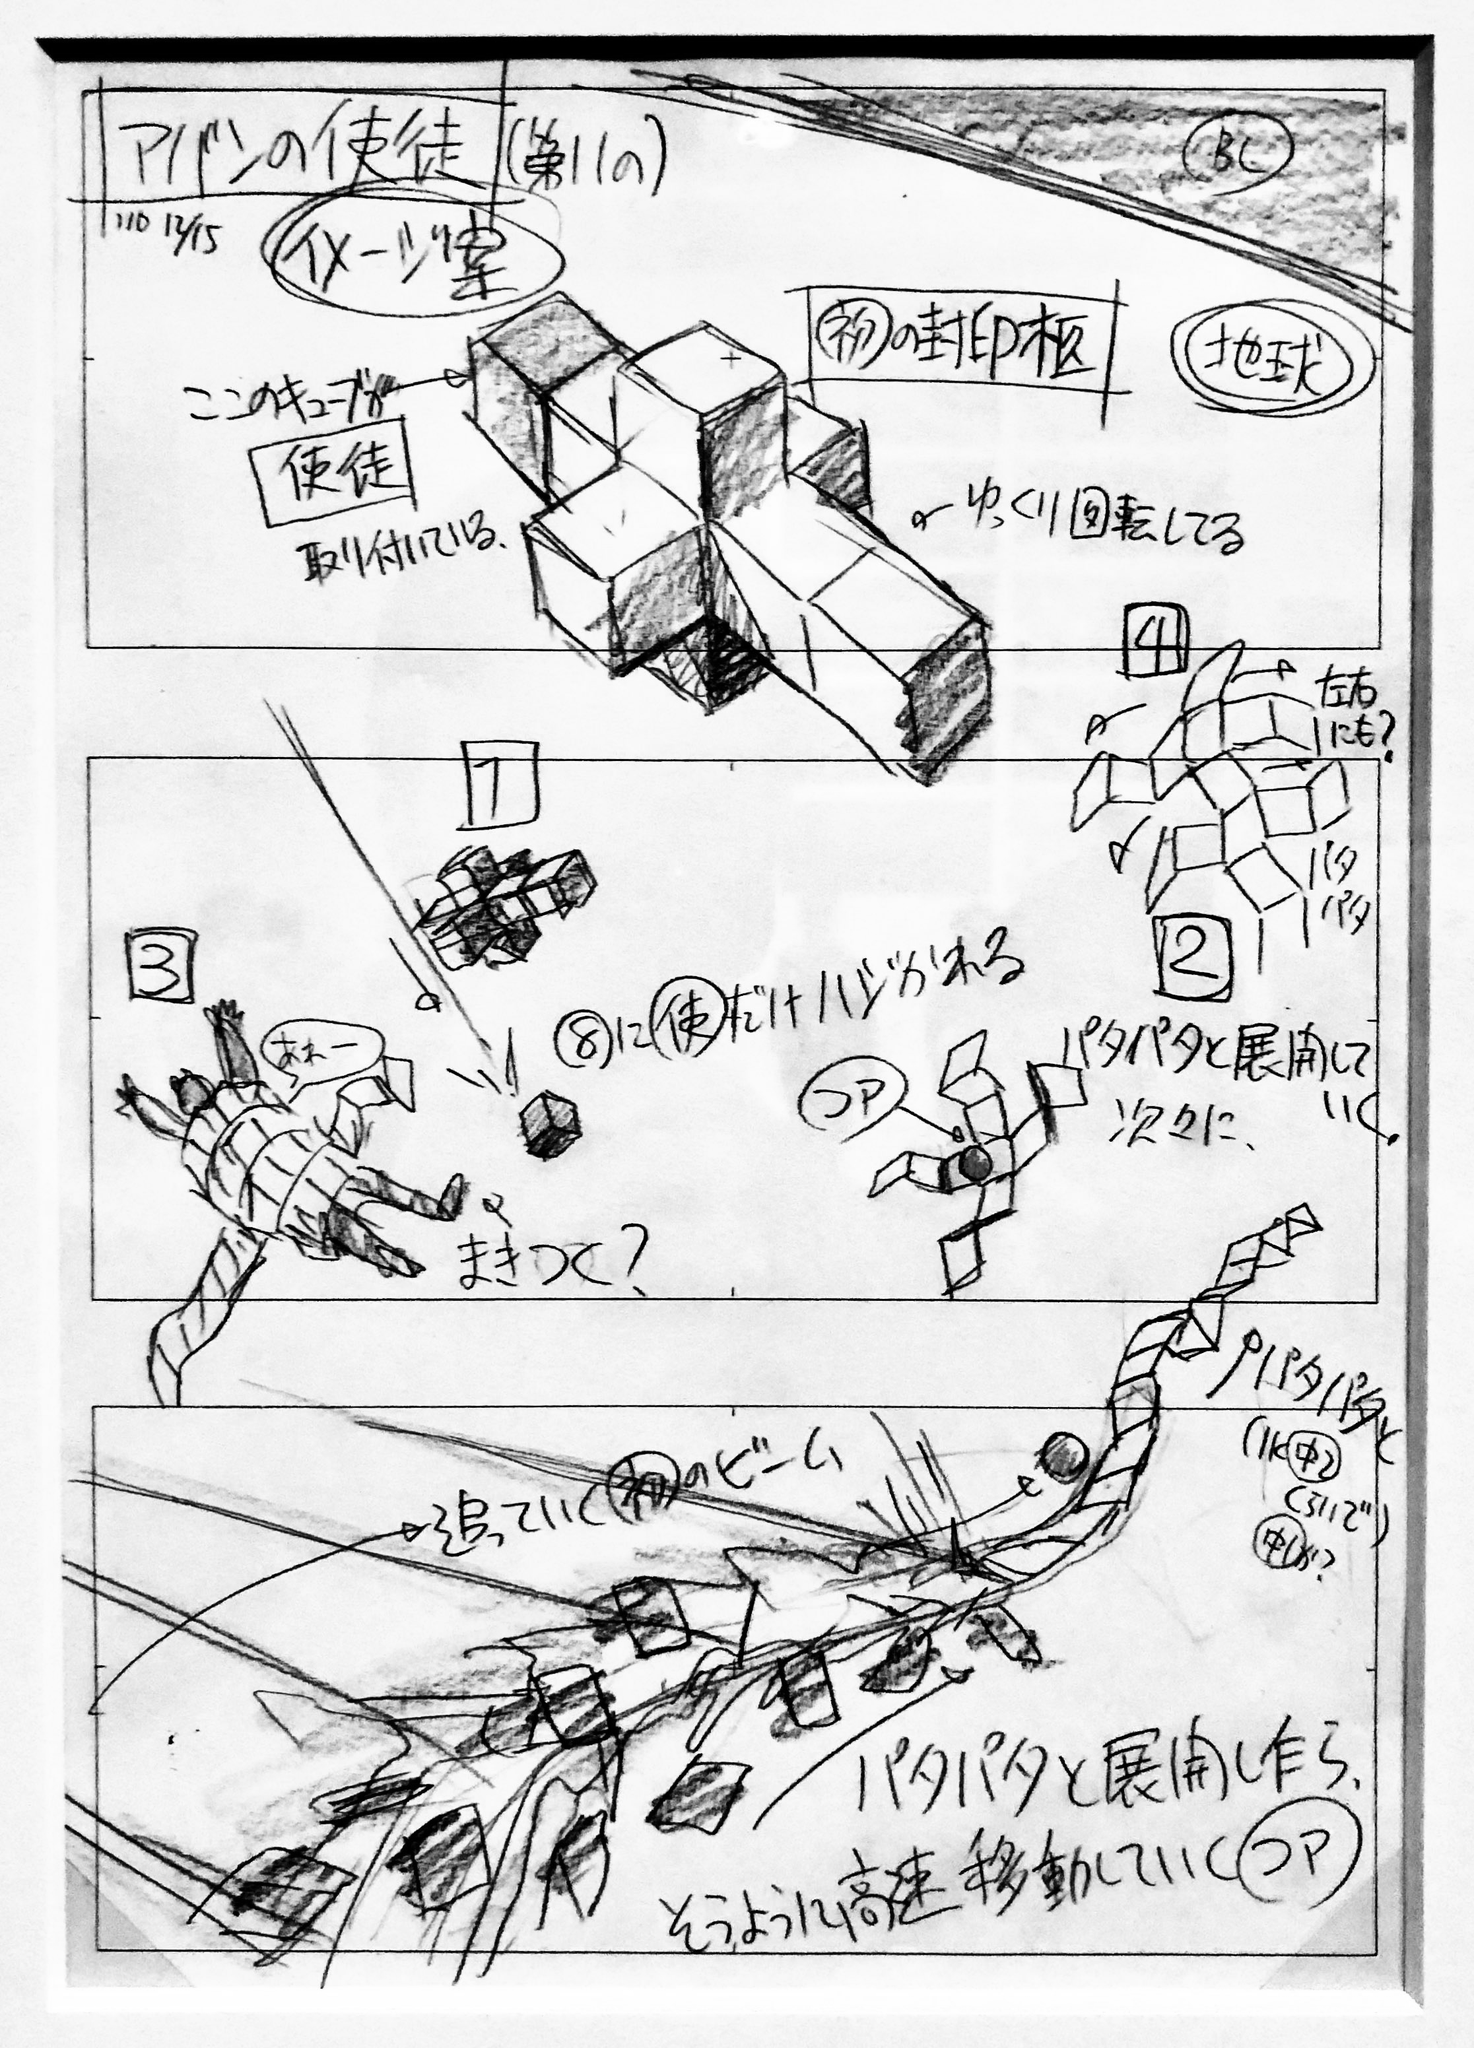 アバンの使徒 (第11の)
110 12/15
イメージ案
BL
㊞初の封印柩
地球
ここのキューブが
使徒
取り付いている、
ゆっくり回転してる
4
左右
にも?
パタ
パタ
1
3
2
⑧に使だけハジかれる
あれー
パタパタと展開して
いく。
次々に、
コア
まきつく?
パタパタと
追っていく初のビーム
パタパタと展開し乍ら、
そうように高速移動していくコア